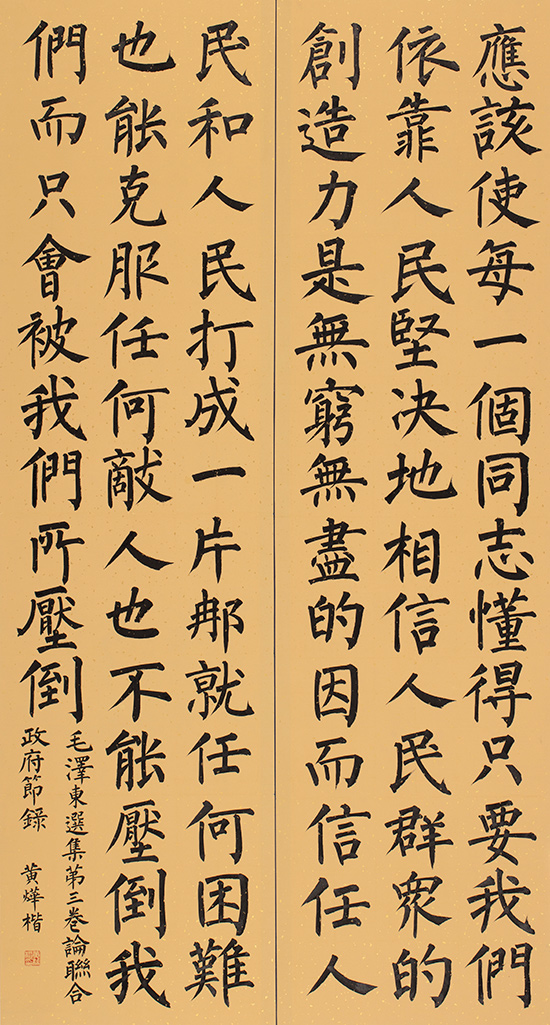 應該使每一個同志懂得只要我們
依靠人民堅决地相信人民群衆的
創造力是無窮無盡的因而信任人
民和人民打成一片那就任何困難
也能克服任何敵人也不能壓倒我
們而只會被我們所壓倒
毛澤東選集第三卷論聯合
政府節錄 黄燁楷